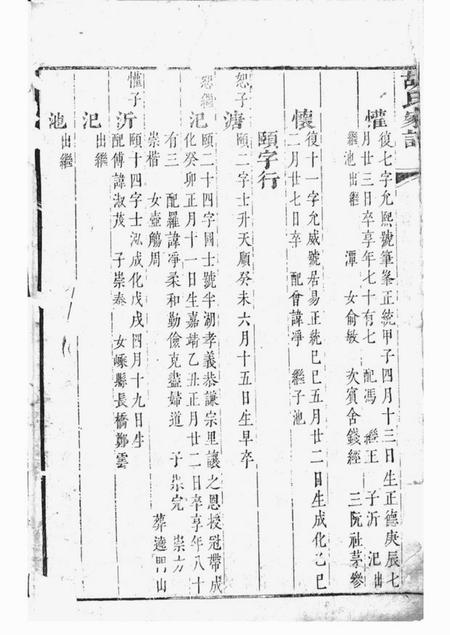 胡氏家譜
懽
復七字允熙號筆峯正統甲子四月十三日生正德庚辰七
月廿三日卒享年七十有七 配馮 繼王 子沂 汜出
繼 池出繼 潭 女俞敏 次賓舍錢經 三阮社茅參
懷
復十一字允威號居易正統己巳五月廿二日生成化己巳
二月廿七日卒 配會諱凈 繼子池
頤字行
恕子
溏
頤二字士升天順癸未六月十五日生早卒
恕繼
汜
頤二十四字國士號半湖孝義恭謙宗里讓之恩授冠帶成
化癸卯正月十一日生嘉靖乙丑正月廿二日卒享年八十
有三 配羅諱凈柔和勤儉克盡婦道 子崇完 崇方
崇楷 女壺觴周 葬遶門山
懽子
沂
頤十四字士泓成化戊戌四月十九日生
配傅諱淑茂 子崇泰 女嵊縣長橋鄭雲
汜
出繼
池
出繼